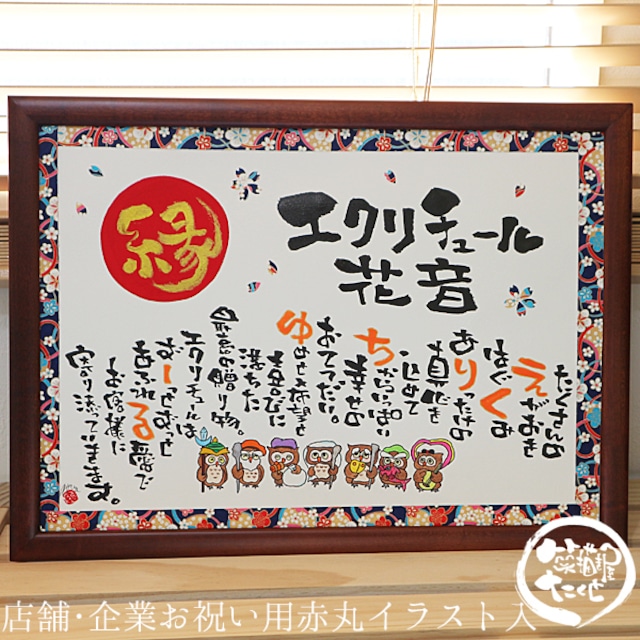 縁
エクリチュール
花音
たくさんの
えがおを
はぐくみ
ありったけの
真心を
込めて
ちからいっぱい
幸せの
おてつだい。
ゆめと希望と
喜びに
満ちた
最高の贈り物。
エクリチュールは
ずーっとずっと
あふれる愛で
お客様に
寄り添っていきます。
店舗・企業お祝い用赤丸イラスト入